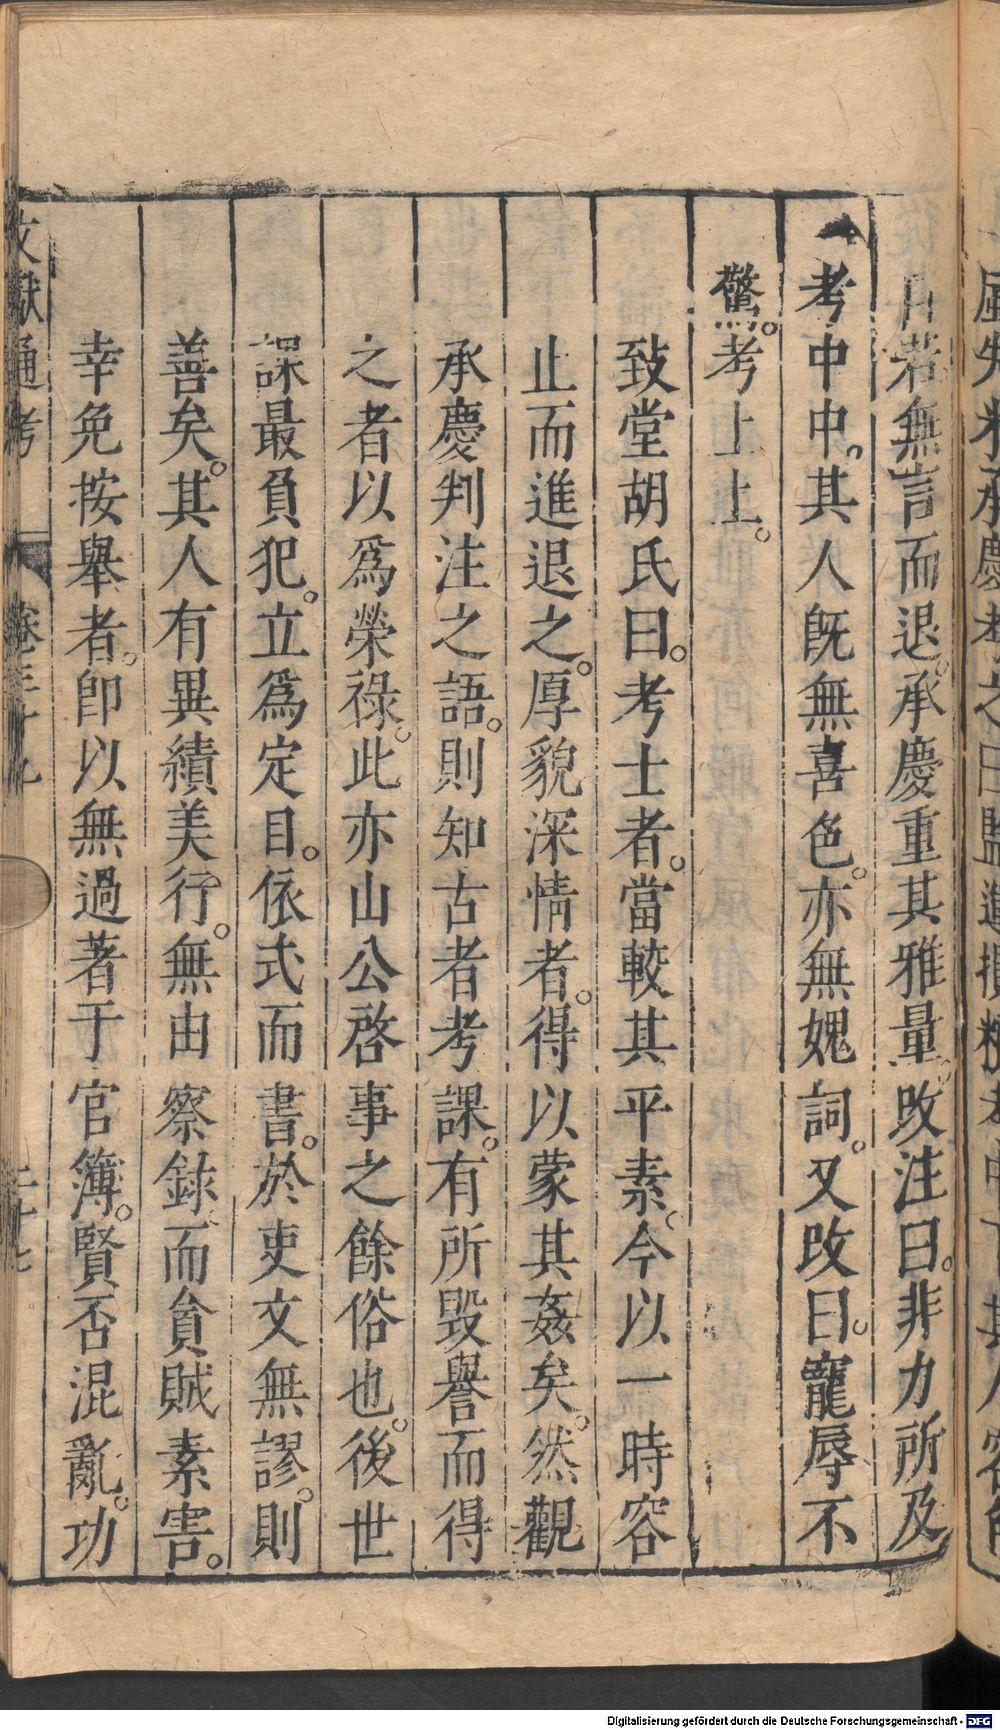 自若無言而退。承慶重其雅量。改注曰。非力所及
考中中。其人旣無喜色。亦無媿詞。又改曰。寵辱不
驚。考上上。
致堂胡氏曰。考士者。當較其平素。今以一時容
止而進退之。厚貌深情者。得以蒙其姦矣。然觀
承慶判注之語。則知古者考課。有所毀譽而得
之者以爲榮祿。此亦山公啓事之餘俗也。後世
課最負犯。立爲定目。依式而書。於吏文無謬。則
善矣。其人有異績美行。無由察錄而貪賊素害。
幸免按舉者。卽以無過著于官簿。賢否混亂。功
文獻通考
卷三十九
二十七
Digitalisierung gefördert durch die Deutsche Forschungsgemeinschaft - DFG